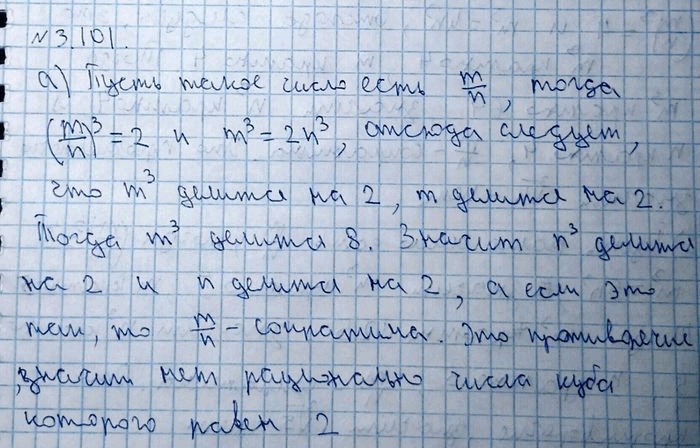 №3.101.
а) Пусть такое число есть m/n, тогда
(m/n)³ = 2 и m³ = 2n³, отсюда следует,
что m³ делится на 2, m делится на 2.
Тогда m³ делится 8. Значит n³ делится
на 2 и n делится на 2, а если это
так, то m/n - сократима. Это противоречие
, значит нет рационально числа куба
которого равен 2